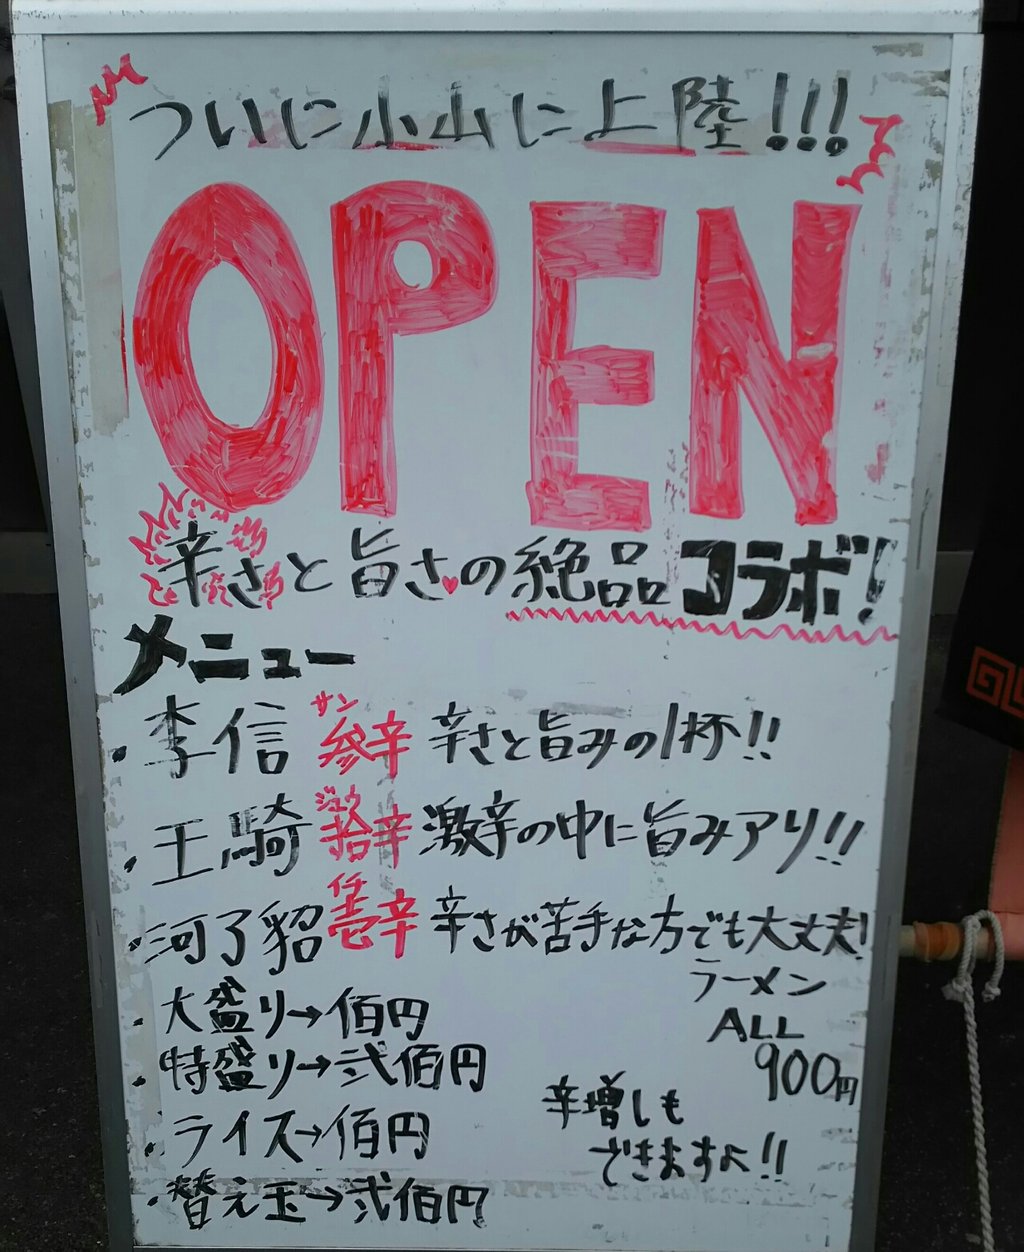 ついに小山に上陸!!!
OPEN
辛さと旨さの絶品コラボ!
メニュー
・李信 参辛 サン 辛さと旨みの1杯!!
・王騎 拾辛 ジュウ 激辛の中に旨みアリ!!
・河了貂 壱辛 イチ 辛さが苦手な方でも大丈夫!
・大盛り→佰円
・特盛り→弐佰円
・ライス→佰円
・替え玉→弐佰円
ラーメン
ALL
900円
辛増しも
できますよ!!